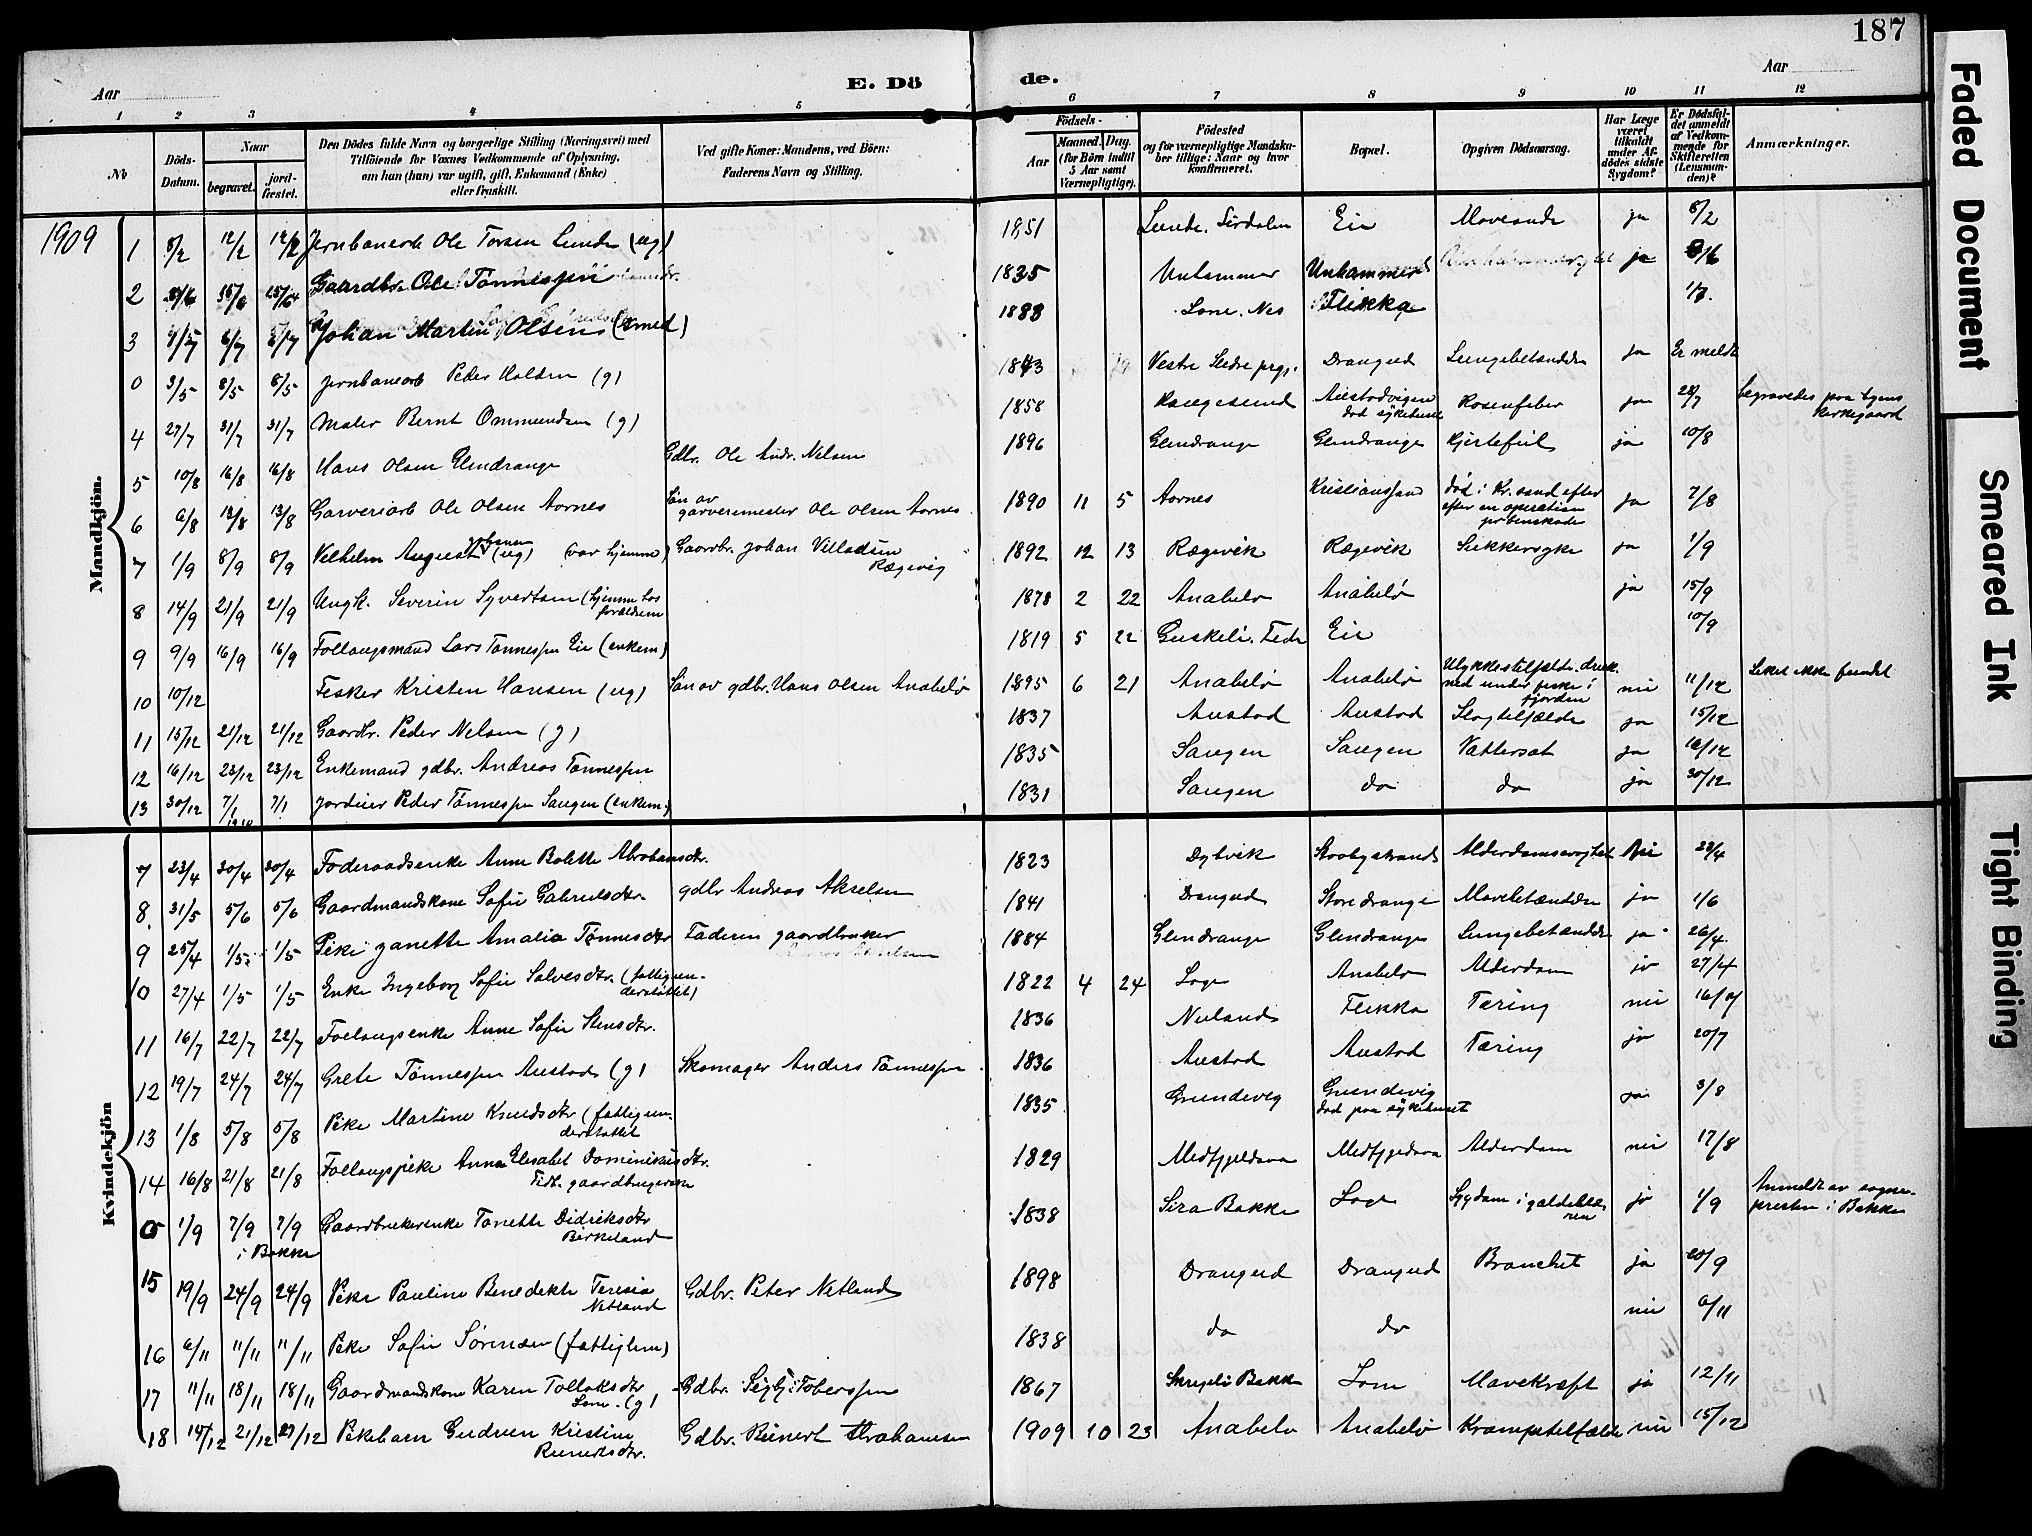 187
Aar
E. Dö de.
Aar
1 2 3 4 5 6 7 8 9 10 11 12
No
Döds-Datum.
Naar
begravet.
jord-fæstet.
Den Dödes fulde Navn og borgerlige Stilling (Næringsvei) med
Tilföiende for Voxnes Vedkommende af Oplysning,
om han (hun) var ugift, gift, Enkemand (Enke)
eller fraskilt.
Ved gifte Koner: Mandens, ved Börn:
Faderens Navn og Stilling.
Födsels-
Aar
Maaned. Dag.
(for Börn indtil
5 Aar samt
Værnepligtige).
Födested
og for værnepligtige Mandska-
ber tillige: Naar og hvor
konfirmeret.
Bopæl.
Opgiven Dödsaarsag.
Har Læge
været
tilkaldt
under Af-
dödes sidste
Sygdom?
Er Dödsfal-
det anmeldt
af Vedkom-
mende for
Skifteretten
(Lensman-
den)?
Anmærkninger.
1909
Mandkjön.
1 8/2 12/2 12/2 Jernbanearb Ole Torsen Lunde (ug) 1851 Lunde. Sirdalen Eie Mavesaade ja 8/2
2 25/6 Gaardbr. Ole Tönnessen 1835 Unhammer Unhammer ja
3 Johan Martin Olsen (smed) 1888 Lone. Nes Flikka 1/7.
0 3/5 8/5 8/5 Jernbanearb Peder Halden (g) 1843 Vestre Slidre prgj. Drangeid Lungebetændelse ja Er meldt
4 27/7 31/7 31/7 Maler Bernt Ommundsen (g) 1858 Haugesund Austadvigen
död sykehuset Rosenfeber ja 28/7 begravedes paa Egens
kirkegaard
5 10/8 16/8 16/8 Hans Olsen Glendrange Gdbr. Ole Andr. Nelsen 1896 Glendrange Glendrange hjertefeil ja 10/8
6 6/8 13/8 13/8 Garveriarb Ole Olsen Aarnes Sön av
garvermester Ole Olsen Aarnes 1890 11 5 Aarnes Kristianssand död i Kr.sand efter
efter en operation
ja 7/8
7 1/9 8/9 8/9 Vilhelm August Johansen (ug) (var hjemme) Gaardbr. Johan Villadsen
Rægevig 1892 12 13 Rægevik Rægevik Sukkersyke ja 1/9
8 14/9 21/9 21/9 Ungk. Severin Syvertsen (hjemme hos
forældrene 1878 2 22 Anabelö Anabelö ja 15/9
9 9/9 16/9 16/9 Follaugsmand Lars Tönnessen Eie (enkem) 1819 5 22 Guskeli. Feda Eie 10/9
10 10/12 Fisker Kristen Hansen (ug) Sön av gdbr. Hans Olsen Anabelö 1895 6 21 Anabelö Anabelö Ulykkestilfælde. druk
ned under fiske i
fjorden nei 11/12 Liket ikke fundet
11 15/12 21/12 21/12 Gaardbr. Peder Nelsen (g) 1837 Austad Austad Slagtilfælde ja 15/12
12 16/12 23/12 23/12 Enkemand gdbr. Andreas Tönnessen 1835 Saugen Saugen Vattersot ja 16/12
13 30/12 7/1
1910 7/1 Jordeier Peder Tönnessen Saugen (enkem.) 1831 Saugen do do ja 30/12
Kvindekjön
7 23/4 30/4 30/4 Föderaadsenke Anne Bolette Abrahamsdtr. 1823 Dybvik Stoobystrand Alderdomssvaghet Nei 23/4
8. 31/5 5/6 5/6 Gaardmandskone Sofie Gabrielsdtr gdbr Andreas Akselsen 1841 Drangeid Store drange Mavebetændelse ja 1/6
9 25/4 1/5 1/5 Pike Janette Amalia Tönnesdtr Faderen gaardbruker 1884 Glendrange Glendrange Lungebetændelse ja 26/4.
10 27/4 1/5 1/5 Enke Ingeborg Sofie Salvesdtr. (fattigun-
derstöttet) 1822 4 24 Loge Anabelö Alderdom ja 27/4
11 16/7 22/7 22/7 Follaugsenke Anne Sofie Jensdtr. 1836 Nuland Flikka Tæring nei 16/7
12 19/7 24/7 24/7 Grete Tönnessen Austad (g) Skomager Anders Tönnessen 1836 Austad Austad Tæring ja 20/7
13 1/8 5/8 5/8 Pike Martine Knudsdtr (fattigun-
derstöttet 1835 Grundevig Grundevig
död paa sykehuset ja 3/8
14 16/8 21/8 21/8 Follaugspike Anna Elisabet Dominikusdtr.
1829 Medfjeldaa Medfjeldaa Alderdom nei 17/8
0 1/9 7/9 7/9
i Bakke Gaardbrukerenke Tonette Didriksdtr
Birkeland 1838 Sira Bakke Loge Sygdom i galdeblæ-
ren ja 1/9 Anmeldt av sogne-
presten i Bakke
15 19/9 24/9 24/9 Pike Pauline Benedikte Teresia
Netland Gdbr. Peter Netland 1898 Drangeid Drangeid Bronchit ja 20/9
16 6/11 11/11 11/11 Pike Sofie Sörensen (fattiglem) 1838 do do nei 6/11
17 11/11 18/11 18/11 Gaardmandskone Karen Tollaksdtr
Lone. (g) Gdbr. Sigbj. Tobersen 1867 Skregeli Bakke Lone Mavekræft ja 12/11
18 14/12 21/12 21/12 Pikebarn Gudrun Kristine
Reinertsdtr. Gdbr. Reinert Abrahamsen 1909 10 23 Anabelö Anabelö Krampetilfælde nei 15/12
Faded Document
Smeared Ink
Tight Binding